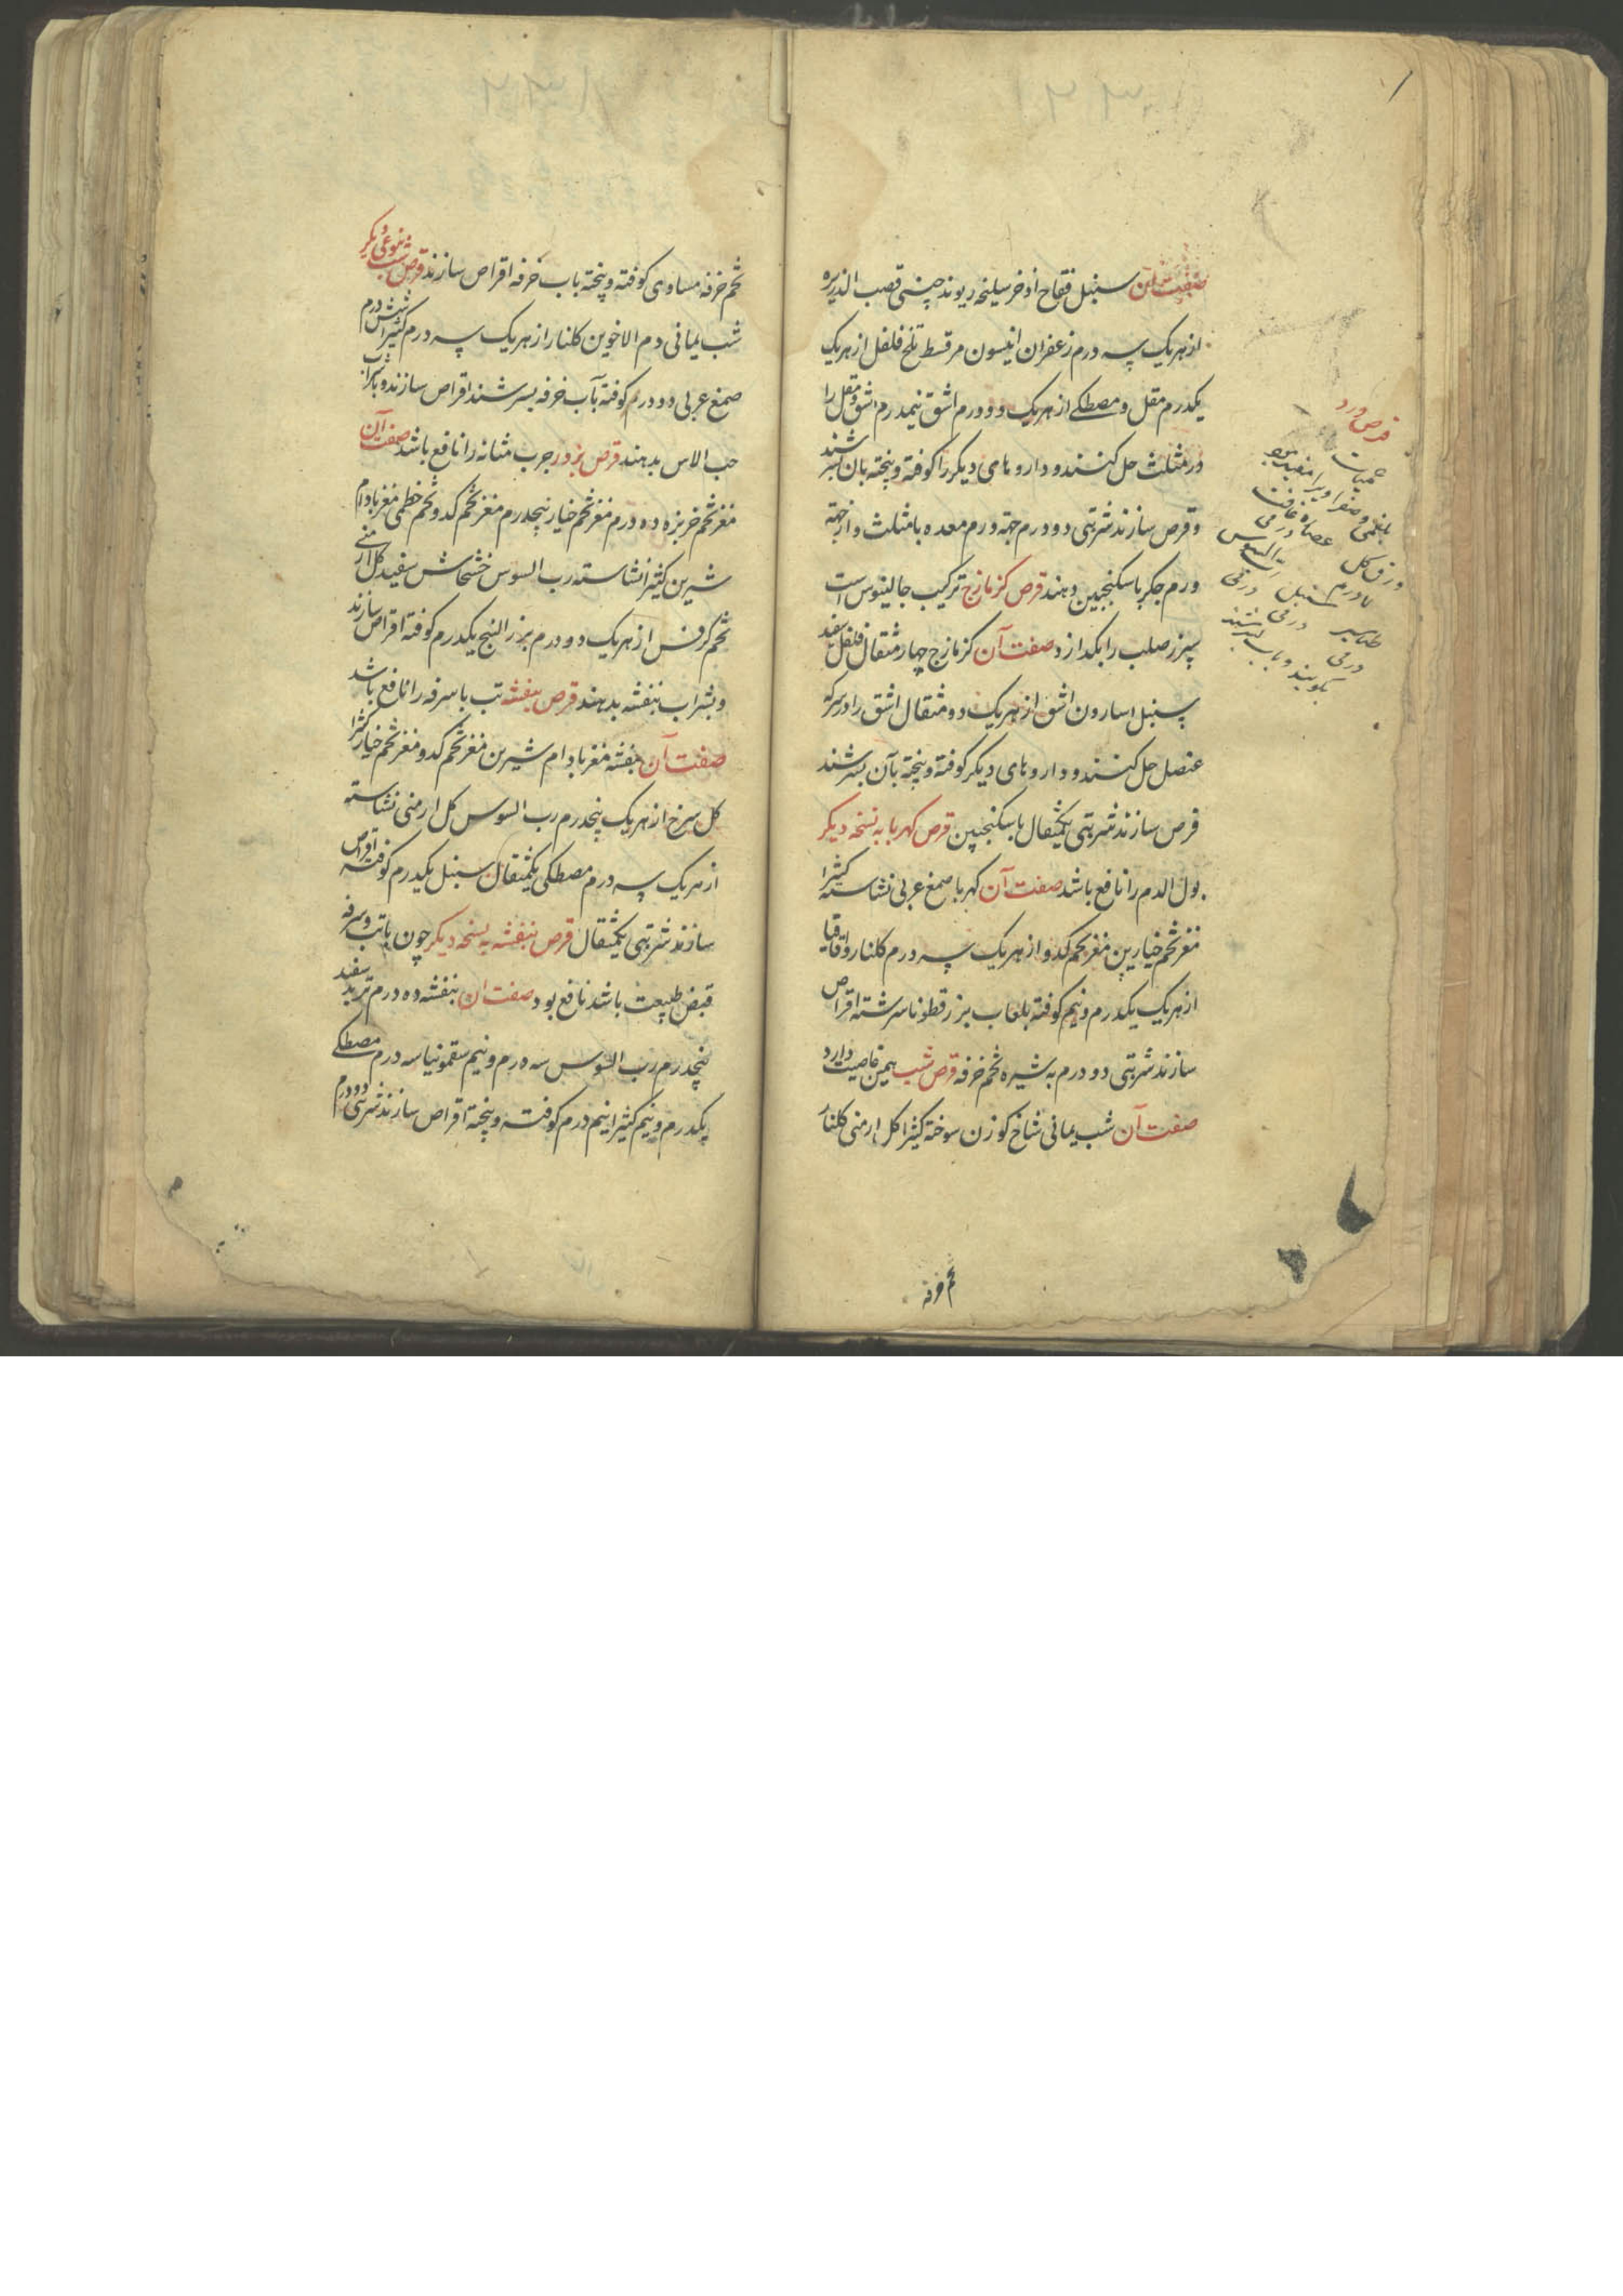 صفت آن سنبل فقاح اذخر سلیخه ریوند چینی قصب الذریره
از هر یک سه درم زعفران انیسون مر قسط تلخ فلفل از هر یک
یکدرم مقل و مصطکی از هر یک دو درم اشق نیمدرم اشق و مقل را
در مثلث حل کنند و داروهای دیگر را کوفته و پخته بان بسرشند
و قرص سازند شربتی دو درم جهة ورم معده با مثلث و از جهة
ورم جکر با سکنجبین دهند قرص کزمازج ترکیب جالینوس است
سپرز صلب را بکدازد صفت آن کزمازج چهار مثقال فلفل سفید
سنبل اسارون اشق از هر یک دو مثقال اشق را در سرکه
عنصل حل کنند و داروهای دیگر کوفته و پخته بآن بسرشند
قرص سازند شربتی یکمثقال با سکنجبین قرص کهربا به نسخه دیکر
بول الدم را نافع باشد صفت آن کهربا صمغ عربی نشاسته کثیرا
مغز تخم خیارین مغز تخم کدو از هر یک سه درم کلنار و اقاقیا
از هر یک یکدرم و نیم کوفته بلعاب بزر قطونا سرشته اقراص
سازند شربتی دو درم به شیره تخم خرفه قرص شب همین خاصیت دارد
صفت آن شب یمانی شاخ کوزن سوخته کثیرا کل ارمنی کلنار
تخم خرفه
قرص ورد
حمیات
بلغمی و صفراوی را مفید بود
ورق کل عصاره غافث
درمی
سنبل درمی
طباشیر درمی
درمی
بکوبند و بآب بسرشند
تخم خرفه مساوی کوفته و پخته باب خرفه اقراص سازند قرص شب بنوعی دیکر
شب یمانی دم الاخوین کلنار از هر یک سه درم کثیرا شش درم
صمغ عربی دو درم کوفته بآب خرفه بسرشند اقراص سازند و با شراب
حب الاس بدهند قرص بزور جرب مثانه را نافع باشد صفت آن
مغز تخم خربزه ده درم مغز تخم خیار پنجدرم مغز تخم کدو تخم خطمی مغز بادام
شیرین کثیرا نشاسته رب السوس خشخاش سفید کل ارمنی
تخم کرفس از هر یک دو درم بزر البنج یکدرم کوفته اقراص سازند
و بشراب بنفشه بدهند قرص بنفشه تب با سرفه را نافع باشد
صفت آن بنفشه مغز بادام شیرین مغز تخم کدو مغز تخم خیار کثیرا
کل سرخ از هر یک پنجدرم رب السوس کل ارمنی نشاسته
از هر یک سه درم مصطکی یکمثقال سنبل یکدرم کوفته اقراص
سازند شربتی یکمثقال قرص بنفشه به نسخه دیکر چون با تب و سرفه
قبض طبیعت باشد نافع بود صفت ان بنفشه ده درم تربد سفید
پنجدرم رب السوس سه درم و نیم سقمونیا سه درم مصطکی
یکدرم و نیم کثیرا نیم درم کوفته و پخته اقراص سازند شربتی دو درم